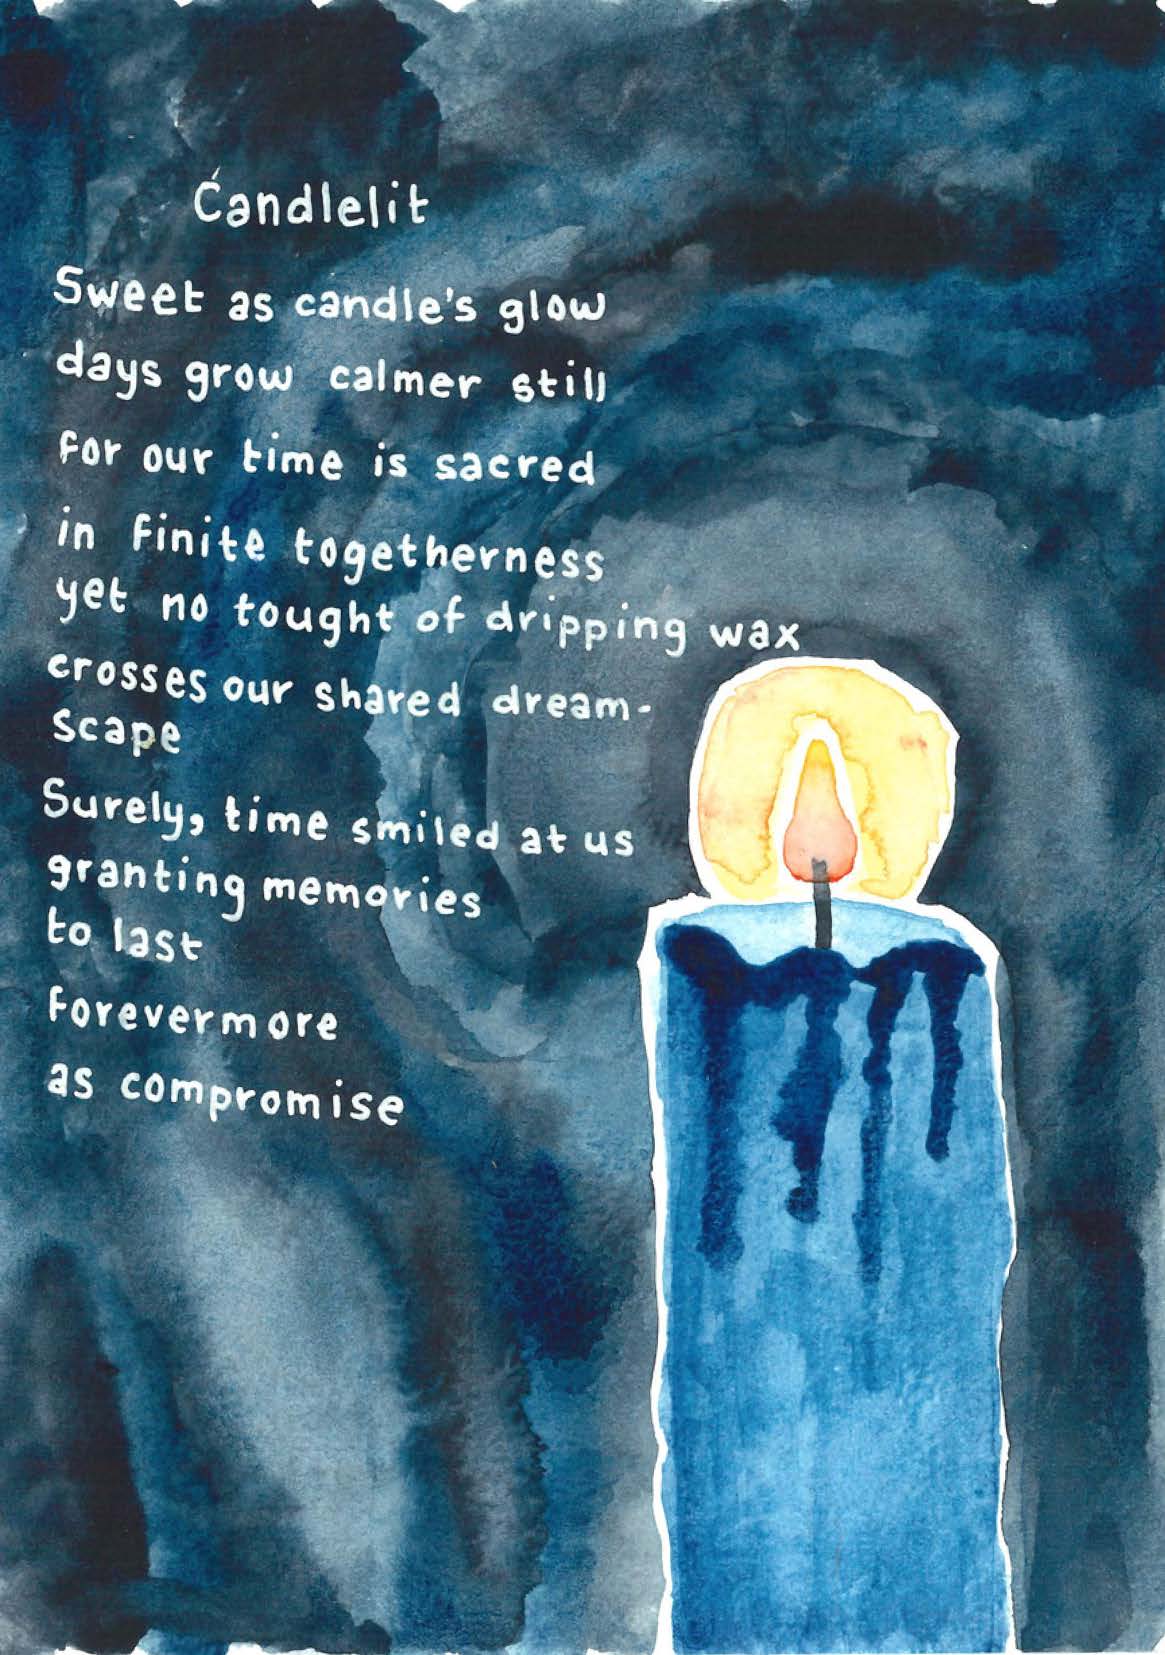 Candlelit
Sweet as candle's glow
days grow calmer still
for our time is sacred
in finite togetherness
yet no tought of dripping wax
crosses our shared dream-
scape
Surely, time smiled at us
granting memories
to last
forevermore
as compromise